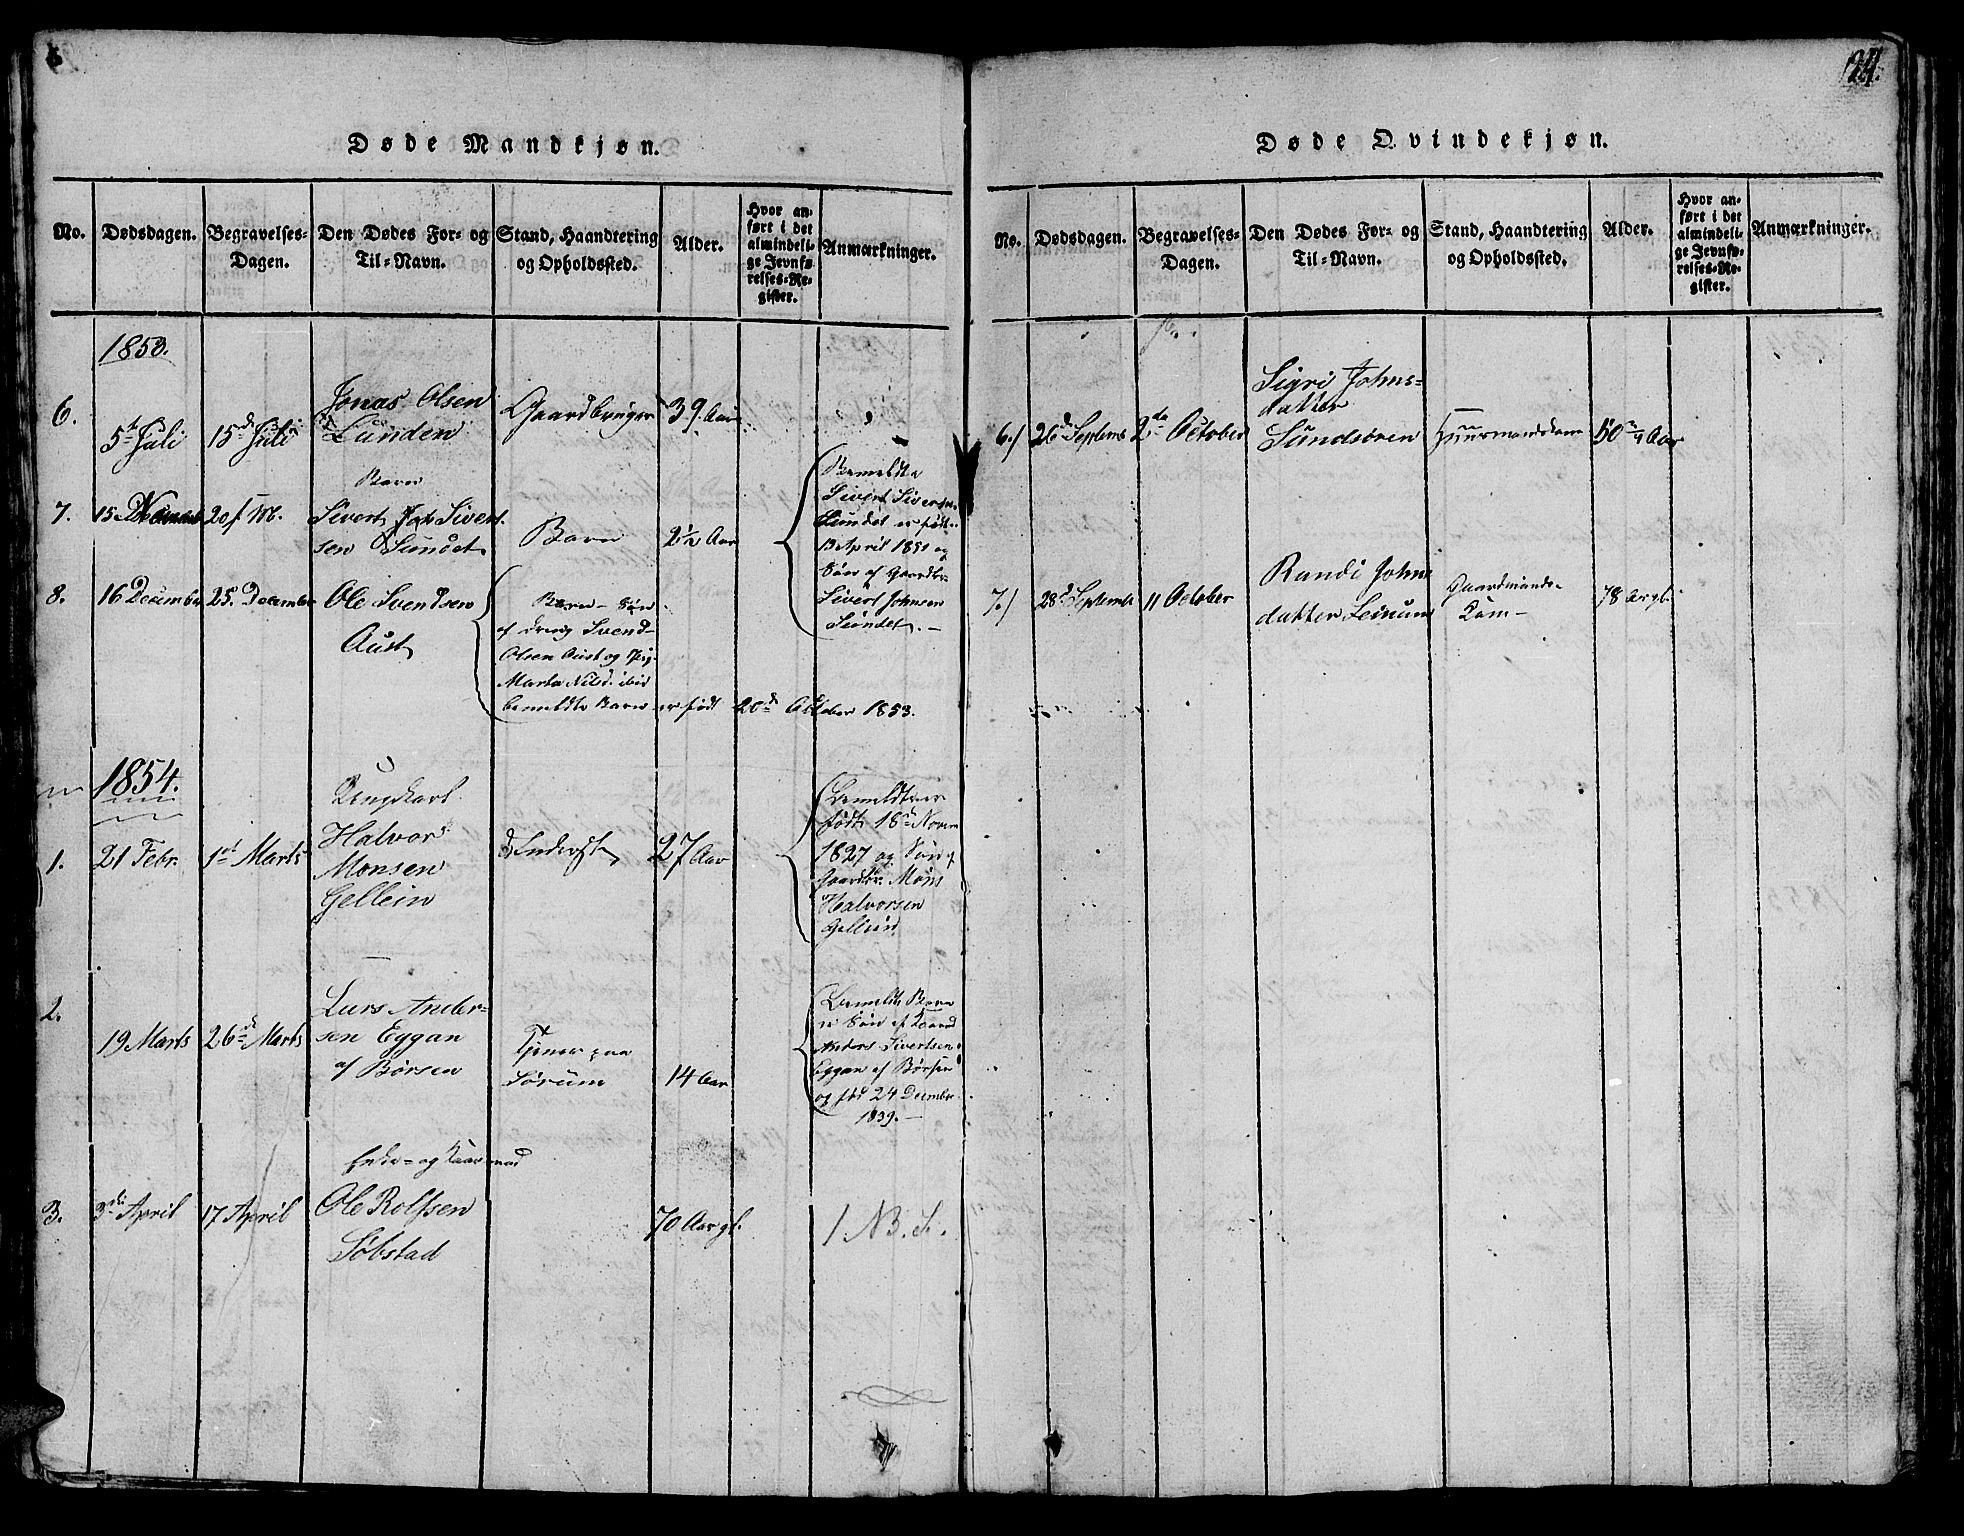 24.
Døde Mandkjøn.
No. Dødsdagen. Begravelses-Dagen. Den Dødes For- og Til-Navn. Stand, Haandtering og Opholdssted. Alder. Hvor anført i det almindelige Jevnførelses-Register. Anmærkninger.
1853.
6. 5te Juli 15d Juli Jonas Olsen
Lunden Gaardbruger 39 Aar
7. 15 20 Barn
Sivert Sivert-
sen Sundet Barn 2½ Aar
Bemeldte
Sivert Sivertsen
Sundet er født
April 1851 og
Søn af Gaardbr.
Sivert Johnsen
Sundet. —
8. 16 December 25. December Ole Svendsen
Aust
Barn – Søn
af Svend
Olsen Aust og
Marta Nilsd. ibid
bemeldte Barn er født 20d October 1853.
1854.
1. 21 Febr. 1st Marts Ungkarl
Halvor
Monsen
Gellein 27 Aar
Bemeldte er
født 18d Novem
1827 og Søn af
Gaardbr. Mons
Halvorsen
Gellein
2. 19 Marts 26d Marts Lars Ander-
sen Eggan
af Børsen
Tjener paa
Sørum 14 Aar
Bemeldte Barn
er Søn af
Anders Sivertsen
Eggan af Børsen
og fød 24 Decembr
1839. —
3. 3die April 17 April
Ole Rolfsen
Søbstad 70 Aar gl.
1 NB.
Døde Qvindekjøn.
No. Dødsdagen. Begravelses-Dagen. Den Dødes For- og Til-Navn. Stand, Haandtering og Opholdssted. Alder. Hvor anført i det almindelige Jevnførelses-Register. Anmærkninger.
6.) 26d Septemb 2de October Sigri Johns-
datter
Sundsøren Huusmandskone Aar
7.) 28d Septembr 11 October Randi Johns
datter Leinum Gaardmands
Kone – 78 Aar gl.